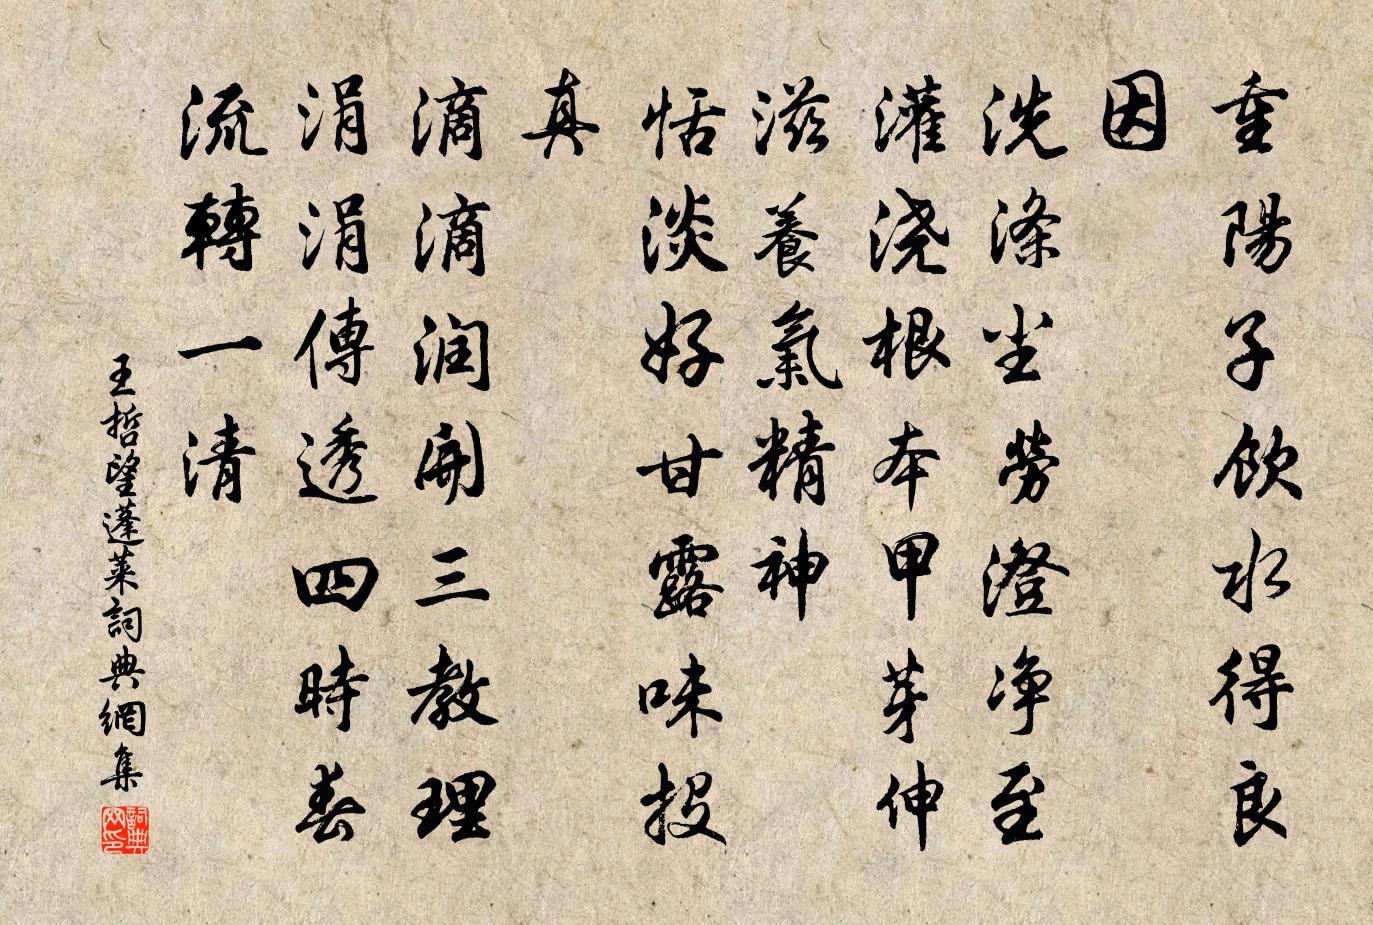 重陽子飲水得良
因
洗滌尘勞澄净至
灌浇根本甲芽伸
滋養氣精神
恬淡好甘露味投
真
滴滴润開三教理
涓涓傳透四時春
流轉一清
王哲望蓬莱詞典網集
詞典网印